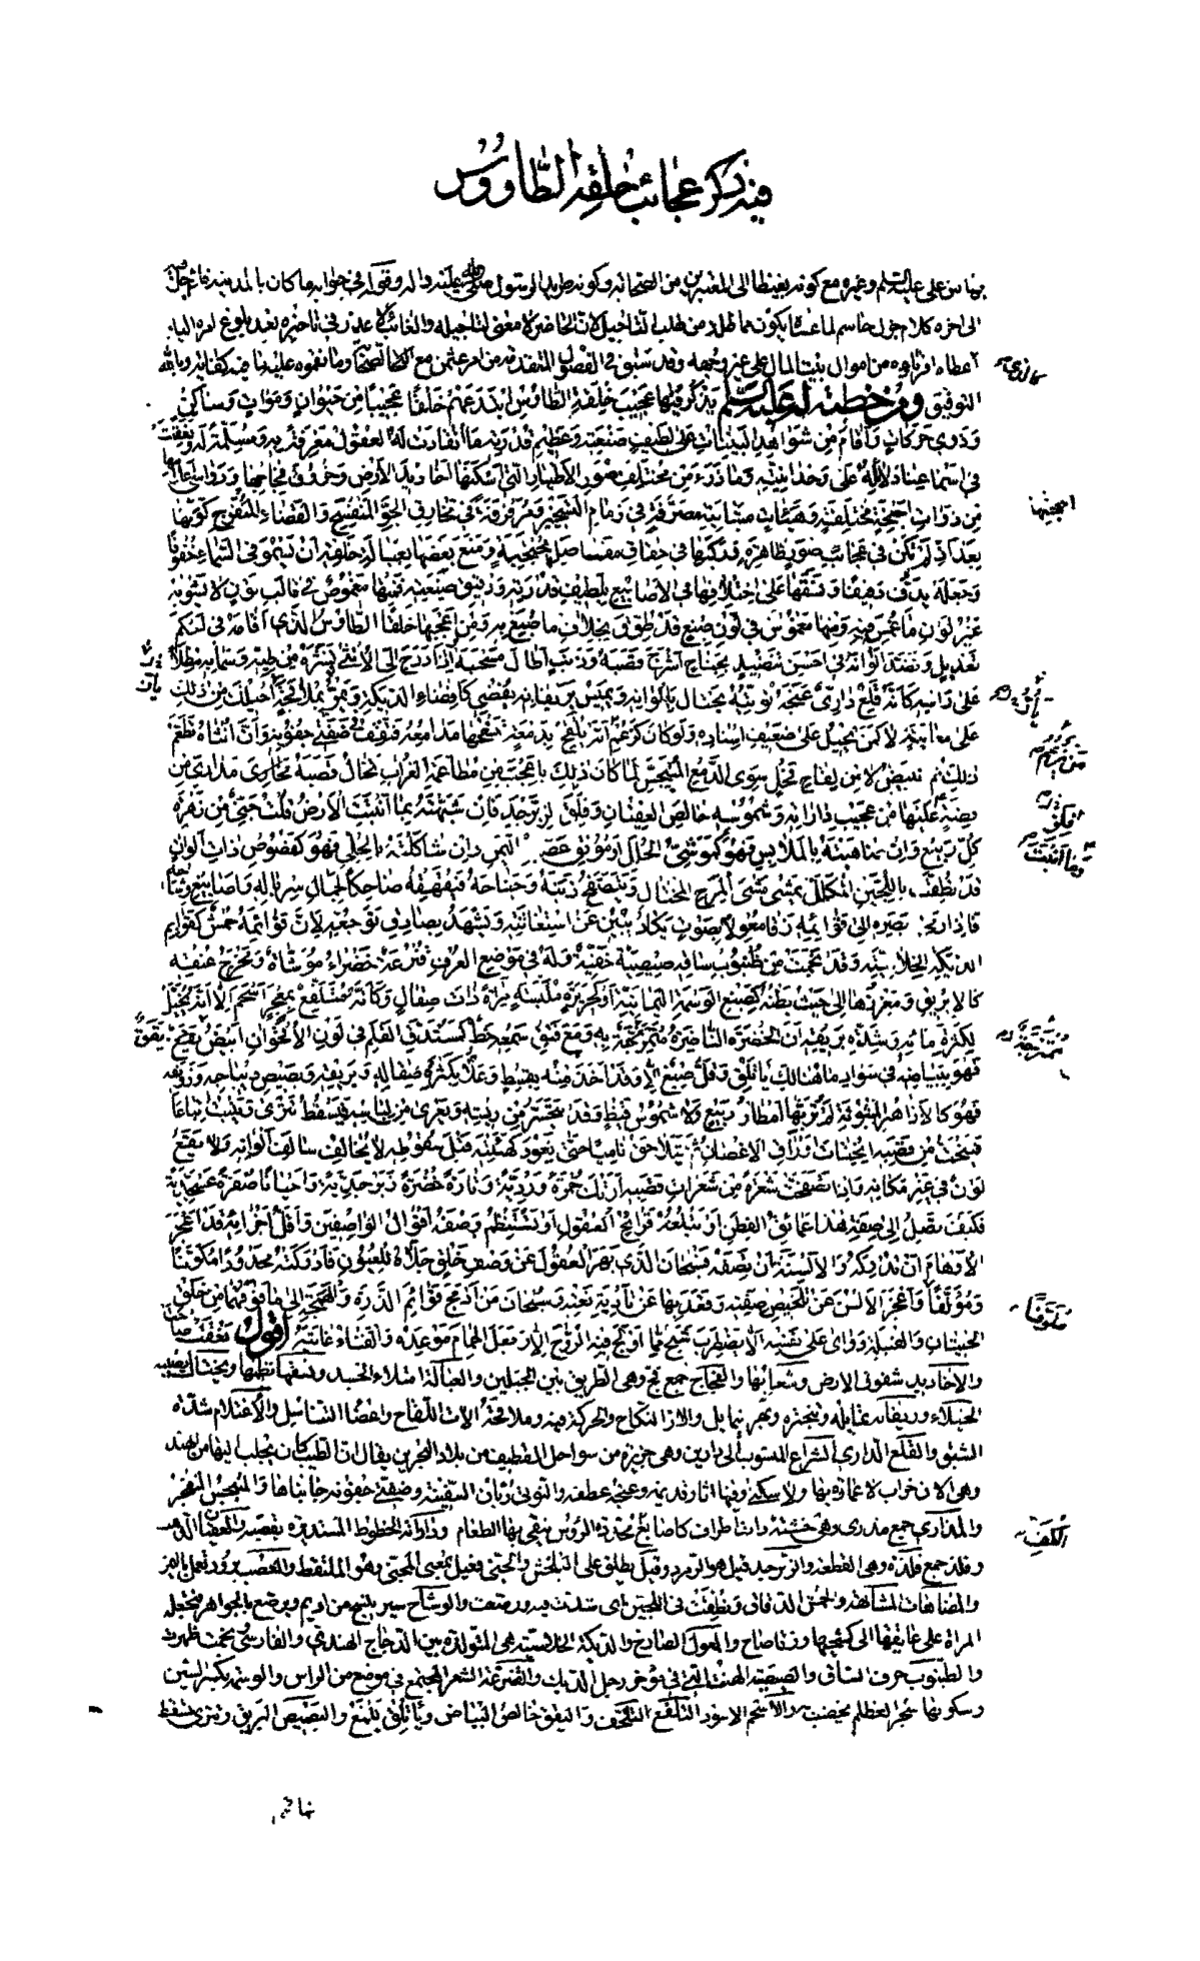 فيه ذكر عجائب خلقة الطاووس
بها من على عليه السلم وغيره مع كونه بغيظا الى المعتبرين من الصحابه وكونه طريد الرسول صلى الله عليه واله وقوله في جوابه ما كان بالمدينه فلا اجل فيه
الى اخره كلام جزل حاسم لما عساه يكون مماطله من طلب التاجيل لان الحاضر لا معنى لتاجيله والغائب لا عذر في تاخيره بعد بلوغ امره اليه
اعطاه اقرباوه من اموال بيت المال على غير وجهه وقد سبق في الفصول المتقدمه من امر عثمن مع الصحابة وما نقموه عليه ما فيه كفايه وبالله
كالذي
التوفيق ومن خطبة له عليه السلم يذكر فيها عجيب خلقة الطاوس ابتدعهم خلقا عجيبا من حيوان وموات وساكن
وذوي حركات واقام من شواهد البينات على لطيف صنعته وعظيم قدرته ما انقادت له العقول معترفة به ومسلمة له ونعقت
في اسماعنا دلائله على وحدانيته وما ذرء من مختلف صور الاطيار التي اسكنها اخاديد الارض وخروق فجاجها ورواسي اعلامها
من ذوات اجنحة مختلفة وهيئات متباينة مصرفة في زمام التسخير ومرفرفة في مخارق الجو المنفسح والفضاء المنفرج كونها
اجنحتها
بعد اذ لم تكن في عجائب صور ظاهرة وركبها في حقاق مفاصل محتجبة ومنع بعضها بعبالة خلقه ان يسمو في السماء خفوفا
وجعله يدف دفيفا ونسقها على اختلافها في الاصابيغ بلطيف قدرته ودقيق صنعته فمنها مغموس في قالب لون لا يشوبه
غير لون ما غمس فيه ومنها مغموس في لون صبغ قد طوق بخلاف ما صبغ به ومن اعجبها خلقا الطاوس الذي اقامه في احكم
تعديل ونضد الوانه في احسن تنضيد بجناح اشرج قصبه وذنب اطال مسحبه اذا درج الى الانثى نشره من طيه وسما به مطلا
على راسه كانه قلع داري عنجه نوتيه يختال بالوانه ويميس بزيفانه يفضي كافضاء الديكة ويؤر بملاقحة احيلك من ذلك
على معاينة لا كمن يحيل على ضعيف اسناده ولو كان كزعم من يزعم انه يلقح بدمعة تسفحها مدامعه فتقف في ضفتي جفونه وان انثاه تطعم
ذلك ثم تبيض لا من لقاح فحل سوى الدمع المنبجس لما كان ذلك باعجب من مطاعمة الغراب تخال قصبه مداري من
فضة وما انبت عليها من عجيب داراته وشموسه خالص العقيان وفلذ الزبرجد فان شبهته بما انبتت الارض قلت جنى جني من زهرة
فلذ
كل ربيع وان ضاهيته بالملابس فهو كموشى الحلل او مونق عصب اليمن وان شاكلته بالحلي فهو كفصوص ذات الوان
وما انبت
قد نطقت باللجين المكلل يمشي مشي المرح المختال ويتصفح ذنبه وجناحه فيقهقه ضاحكا لجمال سرباله واصابيغ وشاحه
فاذا رمى ببصره الى قوائمه زقا معولا بصوت يكاد يبين عن استغاثته ويشهد بصادق توجعه لان قوائمه حمش كقوائم
الديكة الخلاسية وقد نجمت من ظنبوب ساقه صيصية خفية وله في موضع العرف قنزعة خضراء موشاة ومخرج عنقه
كالابريق ومغرزها الى حيث بطنه كصبغ الوسمة اليمانية او كحريرة ملبسة مرآة ذات صقال وكانه متلفع بمعجر اسحم الا انه يخيل
لكثرة مائه وشدة بريقه ان الخضرة الناضرة ممتزجة به ومع فتق سمعه خط كمستدق القلم في لون الاقحوان ابيض يقق
ممتزجة
فهو ببياضه في سواد ما هنالك يأتلق وقل صبغ الا وقد اخذ منه بقسط وعلاه بكثرة صقاله وبريقه وبصيص ديباجه ورونقه
فهو كالازاهير المبثوثة لم تربها امطار ربيع ولا شموس قيظ وقد يتحسر من ريشه ويعرى من لباسه فيسقط تترى وينبت تباعا
فينحت من قصبه انحتات اوراق الاغصان ثم يتلاحق ناميا حتى يعود كهيئته قبل سقوطه لا يخالف سالف الوانه ولا يقع
لون في غير مكانه واذا تصفحت شعرة من شعرات قصبه ارتك حمرة وردية وتارة خضرة زبرجدية واحيانا صفرة عسجدية
فكيف تصل الى صفة هذا عمائق الفطن او تبلغه قرائح العقول او تستنظم وصفه اقوال الواصفين واقل اجزائه قد اعجز
الاوهام ان تدركه والالسنة ان تصفه فسبحان الذي بهر العقول عن وصف خلق جلاه للعيون فادركته محدودا مكونا
ومؤلفا واعجز الالسن عن تلخيص صفته وقعد بها عن تأدية نعته وسبحان من ادمج قوائم الذرة والهمجة الى ما فوقهما من خلق
ملونا
الحيتان والفيلة ووأى على نفسه الا يضطرب شبح مما اولج فيه الروح الا وجعل الحمام موعده والفناء غايته اقول نعقت صاحت
والاخاديد شقوق الارض وشعابها والفجاج جمع فج وهي الطريق بين الجبلين والعبالة امتلاء الجسد ونسقها نظمها ويختال يصيبه
الخيلاء وزيفانه تمايله وتبختره ويؤر الار النكاح والحركة فيه وملاقحة الات اللقاح واعضا التناسل والاغتلام شدة
الشبق والقلع الداري الشراع المنسوب الى دارين وهي جزيرة من سواحل القطيف من بلاد البحرين يقال ان الطيب كان يجلب اليها من الهند
وهي الان خراب لا عمارة بها ولا سكنى وفيها اثار قديمة وعنجه عطفه والنوتي ربان السفينة وضفتي جفونه جانباها والمنبجس المنفجر
والمداري جمع مدرى وهي خشبة ذات اطراف كاصابع محددة الرؤس ينقى بها الطعام وداراته الخطوط المستديرة بقصبه والعقيان الذهب
وفلذ جمع فلذة وهي القطعة والزبرجد قيل هو الزمرد وقيل يطلق على البلخش والجنى فعيل بمعنى المجتنى وهو الملتقط والعصب برود تعمل باليمن
والمضاهات المشابهة والحمش الدقاق ونطقت في اللجين اى شدت فيه ورصعت والوشاح سير ينسج من اديم ويرصع بالجواهر فتجعله
المراة على عاتقها الى كشحيها وزقا صاح والمعول الصارخ والديكة الخلاسية هي المتولدة بين الدجاج الهندي والفارسي ونجمت ظهرت
والظنبوب حرف الساق والصيصية الهنة التي في مؤخر رجل الديك والقنزعة الشعر المجتمع في موضع من الراس والوسمة بكسر السين
وسكونها شجر العظلم يخضب به والاسحم الاسود والتلفع التلحف واليقق خالص البياض ويأتلق يلمع والبصيص البريق وتترى يسقط